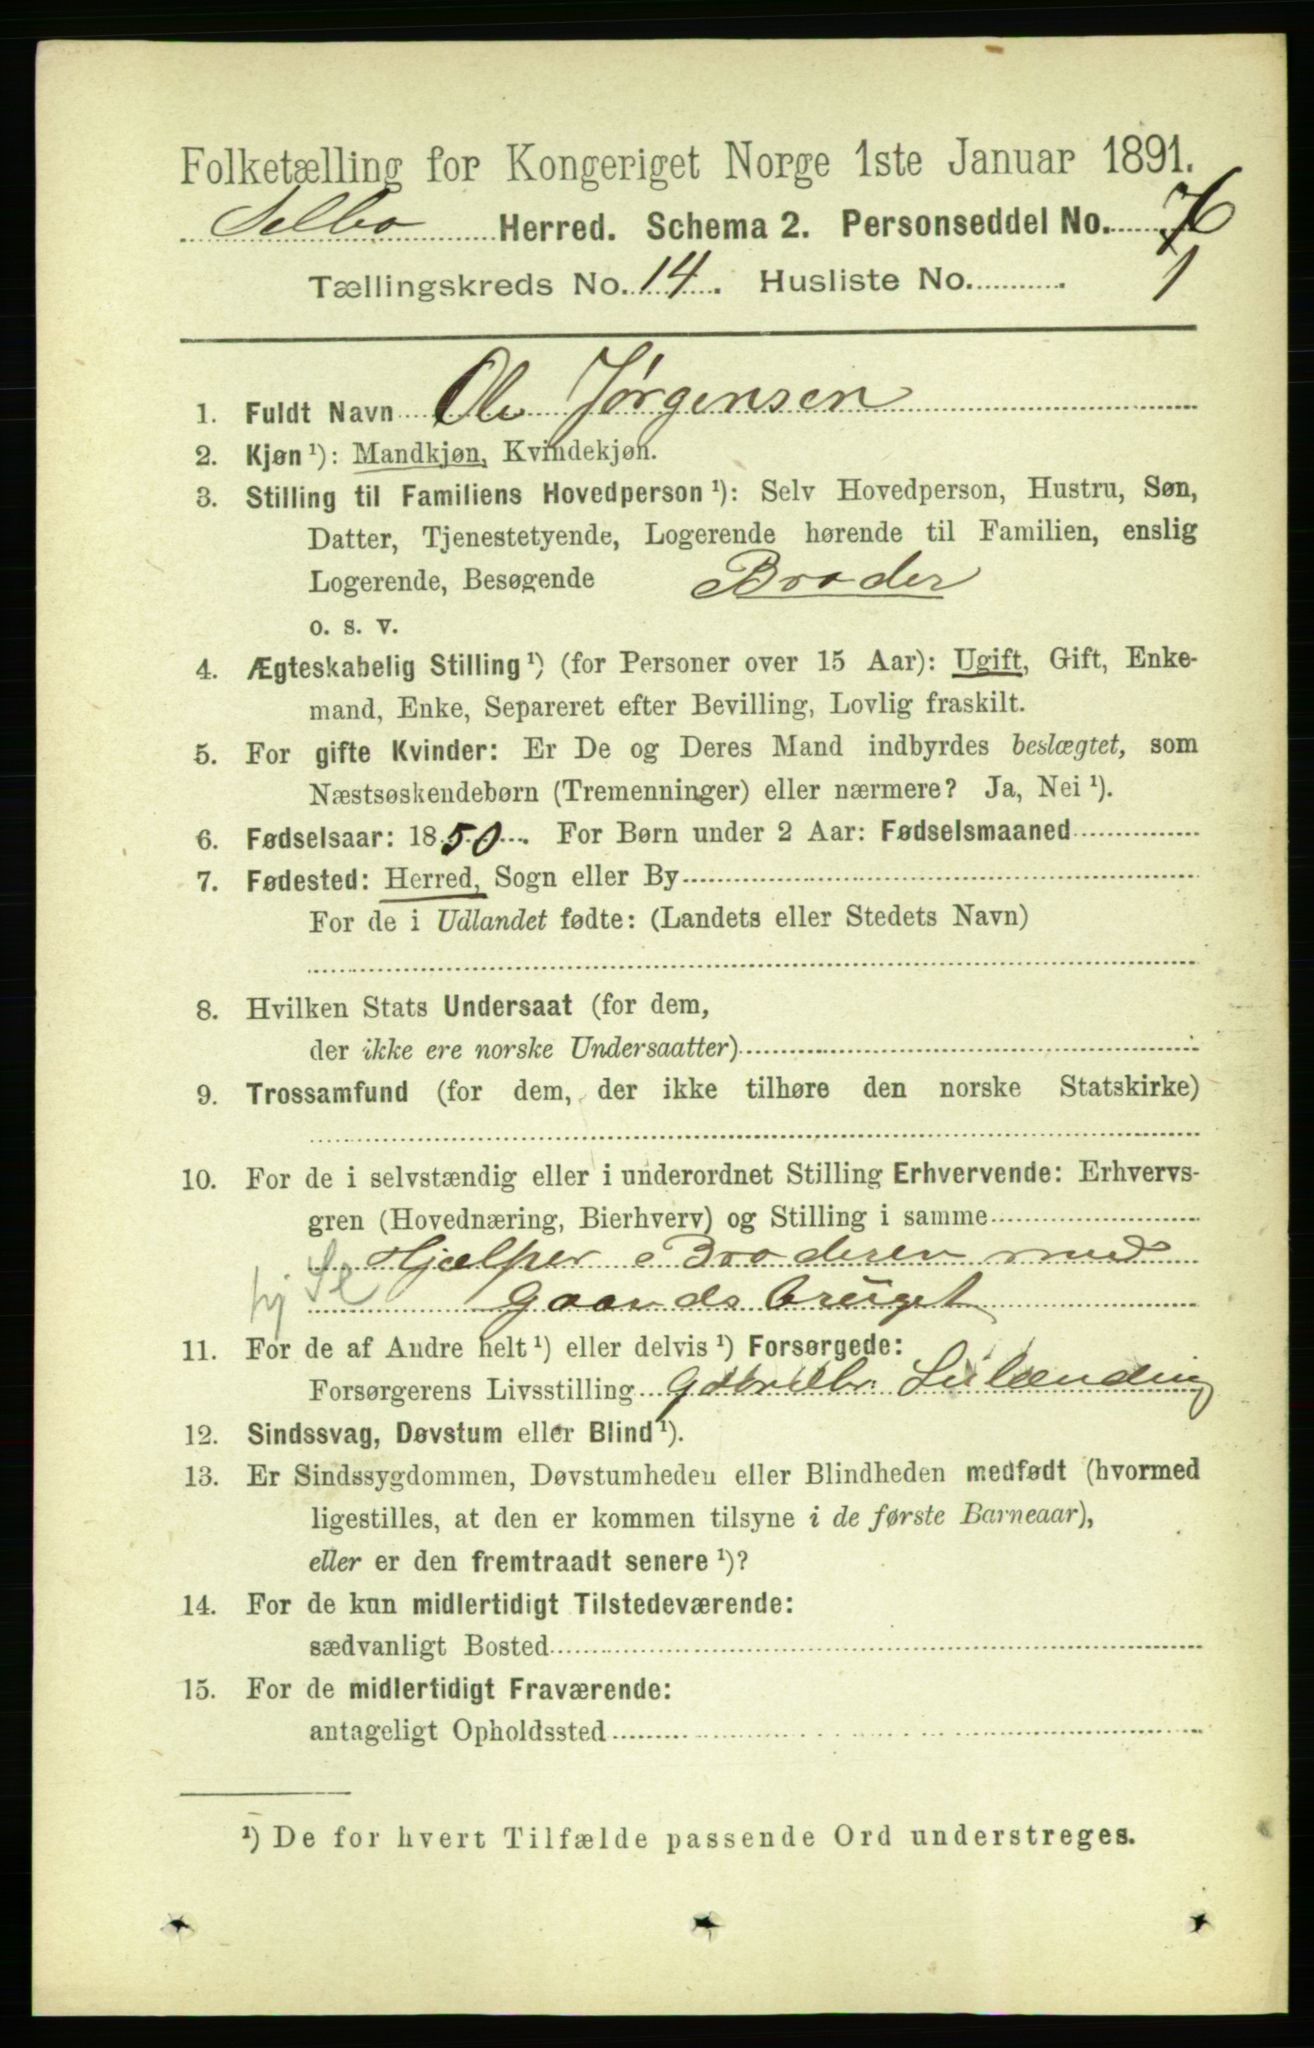 Folketælling for Kongeriget Norge 1ste Januar 1891.
Selbo Herred. Schema 2. Personseddel No. 76
Tællingskreds No. 14. Husliste No. 1
1. Fuldt Navn Ole Jørgensen
2. Kjøn ¹): Mandkjøn, Kvindekjøn.
3. Stilling til Familiens Hovedperson ¹): Selv Hovedperson, Hustru, Søn,
Datter, Tjenestetyende, Logerende hørende til Familien, enslig
Logerende, Besøgende Broder
o. s. v.
4. Ægteskabelig Stilling ¹) (for Personer over 15 Aar): Ugift, Gift, Enke-
mand, Enke, Separeret efter Bevilling, Lovlig fraskilt.
5. For gifte Kvinder: Er De og Deres Mand indbyrdes beslægtet, som
Næstsøskendebørn (Tremenninger) eller nærmere? Ja, Nei ¹).
6. Fødselsaar: 1850. For Børn under 2 Aar: Fødselsmaaned
7. Fødested: Herred, Sogn eller By
For de i Udlandet fødte: (Landets eller Stedets Navn)
8. Hvilken Stats Undersaat (for dem,
der ikke ere norske Undersaatter)
9. Trossamfund (for dem, der ikke tilhøre den norske Statskirke)
10. For de i selvstændig eller i underordnet Stilling Erhvervende: Erhvervs-
gren (Hovednæring, Bierhverv) og Stilling i samme
Hjælper Broderen med
hj Gaardsbruget
11. For de af Andre helt ¹) eller delvis ¹) Forsørgede:
Forsørgerens Livsstilling Gdbr
12. Sindssvag, Døvstum eller Blind ¹).
13. Er Sindssygdommen, Døvstumheden eller Blindheden medfødt (hvormed
ligestilles, at den er kommen tilsyne i de første Barneaar),
eller er den fremtraadt senere ¹)?
14. For de kun midlertidigt Tilstedeværende:
sædvanligt Bosted
15. For de midlertidigt Fraværende:
antageligt Opholdssted
¹) De for hvert Tilfælde passende Ord understreges.